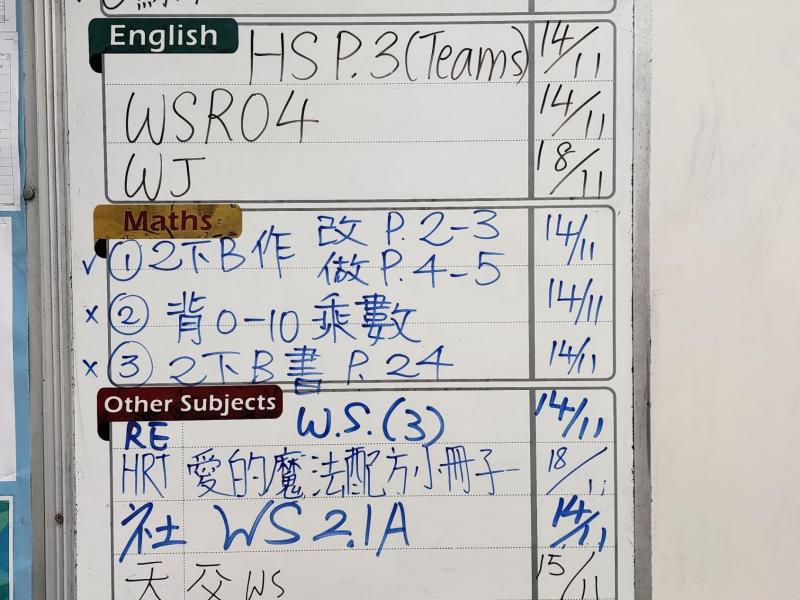 English
HS P.3 (Teams) 14/11
WSR04 14/11
WJ 18/11
Maths
✓ ① 2下B作 改 P.2-3 14/11
做 P.4-5
× ② 背0-10乘數 14/11
× ③ 2下B書 P.24 14/11
Other Subjects
RE W.S.(3) 14/11
HRT 愛的魔法配方小冊子 18/11
社 WS 2.1A 14/11
天 交 WS 15/11